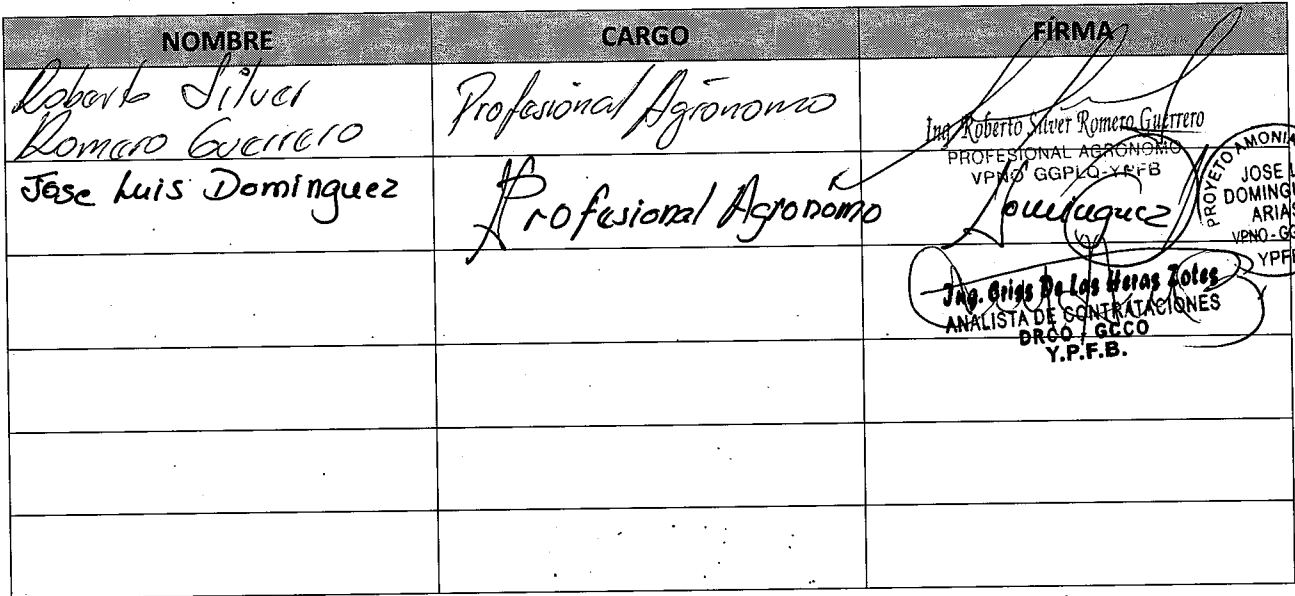 NOMBRE CARGO FIRMA
Roberto Silver
Romero Guerrero
Profesional Agronomo
Ing. Roberto Silver Romero Guerrero
PROFESIONAL AGRONOMO
VPNO GGPLQ-YPFB
Jose Luis Dominguez
Profesional Agronomo
Dominguez
PROYETO AMONIA
JOSE L
DOMINGU
ARIAS
VPNO-GG
YPF
Ing. Criss De Las Heras Zotes
ANALISTA DE CONTRATACIONES
DRCO / GCCO
Y.P.F.B.